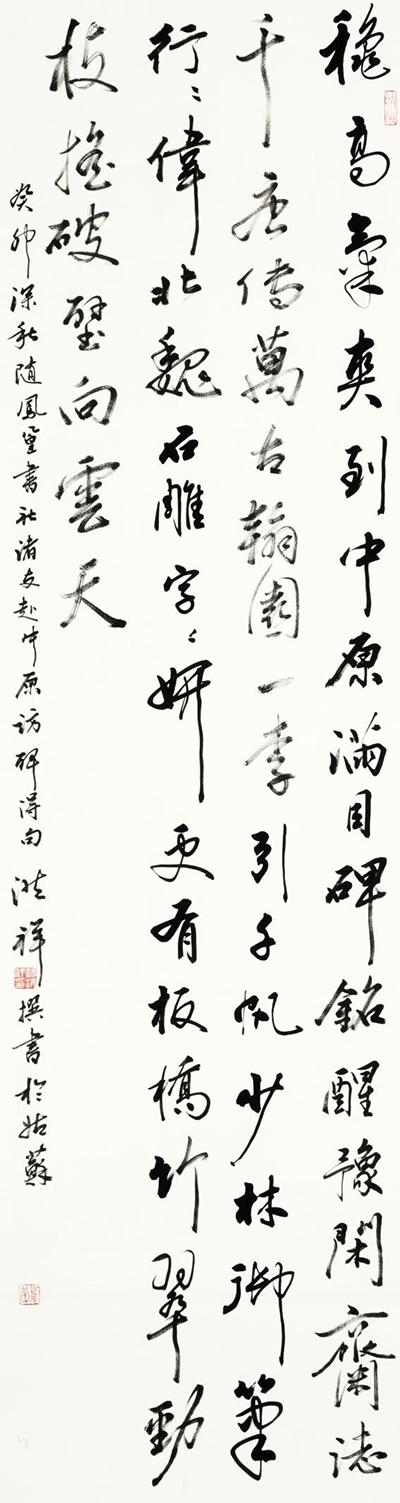 穐高氣爽到中原滿目碑銘醒豫閑齋誌
千唐傳萬古翰園一李引千帆少林御筆
行〻偉北魏石雕字〻妍更有板橋竹翠勁
枝搖破壁向雲天
癸卯深秋隨鳳篁書社諸友赴中原訪碑得句洪祥撰書於姑蘇